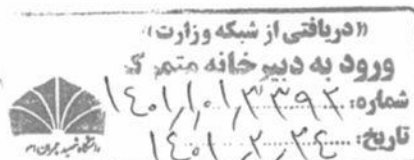 «دریافتی از شبکه وزارت»
ورود به دبیرخانه متمرکز
شماره: ۱۴۰۱/۱۰۱/۳۳۹۲
تاریخ: ۱۴۰۱/۲/۲۴
دانشگاه شهید چمران اهواز